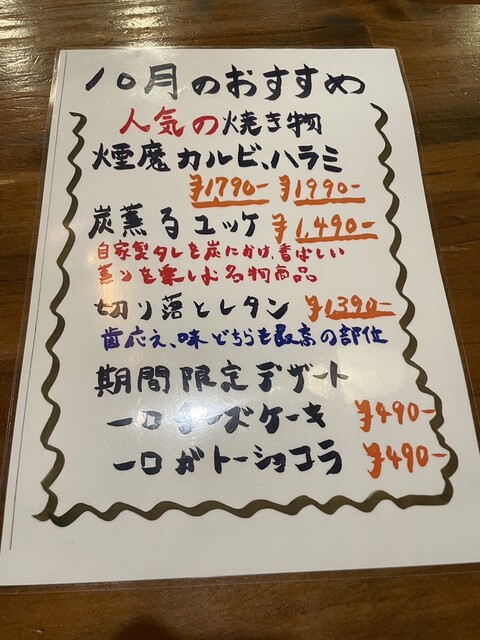 10月のおすすめ
人気の焼き物
煙魔カルビ、ハラミ
¥1,790- ¥1990-
炭薫るユッケ ¥1,490-
自家製タレを炭にかけ、香ばしい
薫りを楽しむ名物商品
切り落としタン ¥1,390-
歯応え、味どちらも最高の部位
期間限定デザート
一口チーズケーキ ¥490-
一口ガトーショコラ ¥490-